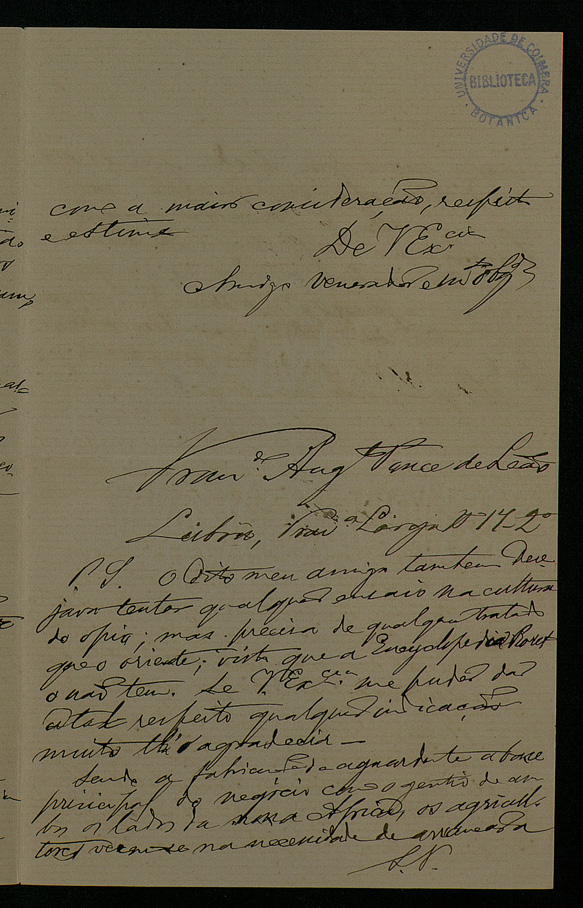 UNIVERSIDADE DE COIMBRA
BIBLIOTECA
BOTANICA
com a maior consideração, respeito
e estima
De V Ex.cia
Amigo Venerador e m.to obg.do
Fran.co Aug.to Ponce de Leão
Lisbôa, Trav.a Larga Nº 17-2º
P.S. O dito meu amigo tambem dese-
java tentar qualquer ensaio na cultura
do opio; mas precisa de qualquer tratado
que o oriente; visto que a Encyclopedia Roret
o não tem. Se V.Ex.cia me puder dar
a tal respeito qualquer indicação
muito lh'o agradecia —
Sendo a fabricação da aguardente a base
principal do negocio com o gentio de am-
bos os lados da nossa Africa, os agricul-
tores veem-se na necessidade de